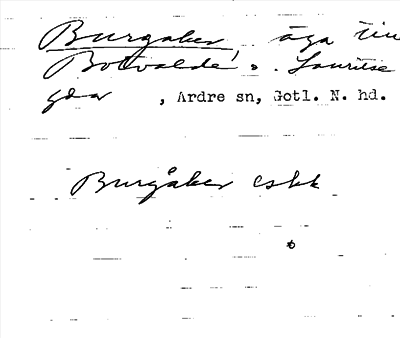 Burgaker, äga till
Botvalde, o. Lauritse
gdar, Ardre sn, Gotl. N. hd.
Burgåker cskk